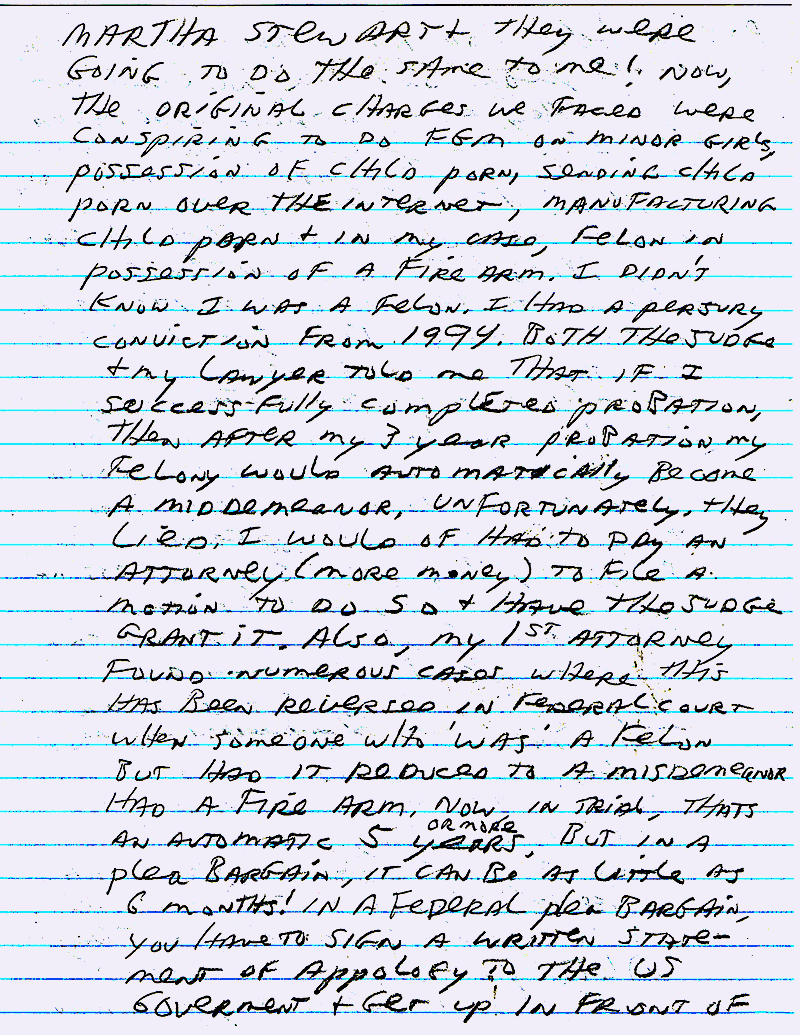 MARTHA STEWART & they were
GOING TO DO THE SAME TO ME! NOW,
THE ORIGINAL CHARGES WE FACED WERE
CONSPIRING TO DO FGM ON MINOR GIRLS,
POSSESSION OF CHILD PORN, SENDING CHILD
PORN OVER THE INTERNET, MANUFACTURING
CHILD PORN + IN MY CASE, FELON IN
POSSESSION OF A FIRE ARM. I DIDN'T
KNOW I WAS A FELON. I HAD A PERJURY
CONVICTION FROM 1994. BOTH THE JUDGE
+ MY LAWYER TOLD ME THAT IF I
SUCCESSFULLY COMPLETED PROBATION,
THEN AFTER MY 3 YEAR PROBATION MY
FELONY WOULD AUTOMATICALLY BECOME
A MIDDEMEANOR, UNFORTUNATELY, THEY
LIED. I WOULD OF HAD TO PAY AN
ATTORNEY (MORE MONEY) TO FILE A
MOTION TO DO SO + HAVE THE JUDGE
GRANT IT. ALSO, MY 1ST ATTORNEY
FOUND NUMEROUS CASES WHERE THIS
HAS BEEN REVERSED IN FEDERAL COURT
WHEN SOMEONE WHO 'WAS' A FELON
BUT HAD IT REDUCED TO A MISDEMEANOR
HAD A FIRE ARM. NOW IN TRIAL, THATS
AN AUTOMATIC 5 YEARS OR MORE, BUT IN A
PLEA BARGAIN, IT CAN BE AS LITTLE AS
6 MONTHS! IN A FEDERAL PLEA BARGAIN,
YOU HAVE TO SIGN A WRITTEN STATE-
MENT OF APPOLOGY TO THE US
GOVERMENT + GET UP IN FRONT OF